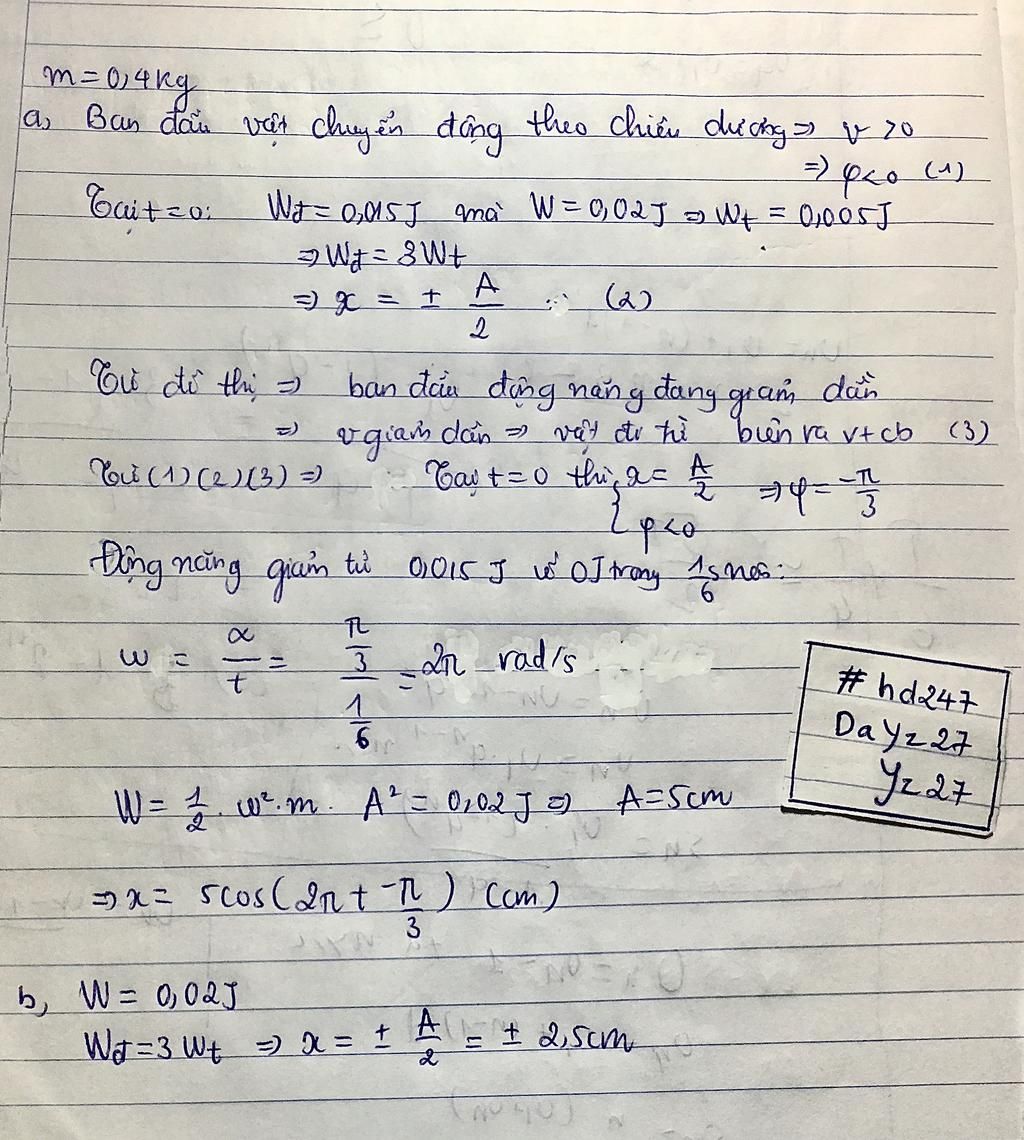 m = 0,4kg
a, Ban đầu vật chuyển động theo chiều dương ⇒ v > 0
⇒ φ < 0 (1)
Tại t = 0: Wđ = 0,015J mà W = 0,02J ⇒ Wt = 0,005J
⇒ Wđ = 3Wt
⇒ x = ± A/2 (2)
Từ đồ thị ⇒ ban đầu động năng đang giảm dần
⇒ v giảm dần ⇒ vật đi từ biên ra vtcb (3)
Từ (1) (2) (3) ⇒ Tại t = 0 thì { x = A/2 ⇒ φ = -π/3
φ < 0
Động năng giảm từ 0,015 J về 0J trong 1/6 s nên:
ω = α/t = (π/3)/(1/6) = 2π rad/s
W = 1/2 . ω² . m . A² = 0,02J ⇒ A = 5cm
⇒ x = 5cos(2πt + -π/3) (cm)
b, W = 0,02J
Wđ = 3Wt ⇒ x = ± A/2 = ± 2,5cm
# hd247
DaYz27
Yz27